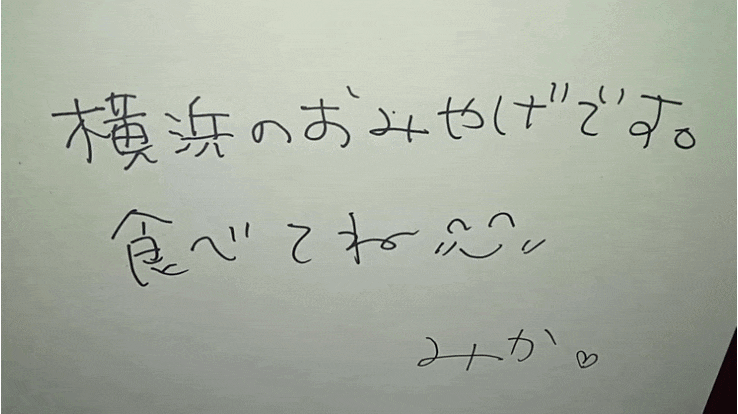 横浜のおみやげです。
食べてね
みか。♡